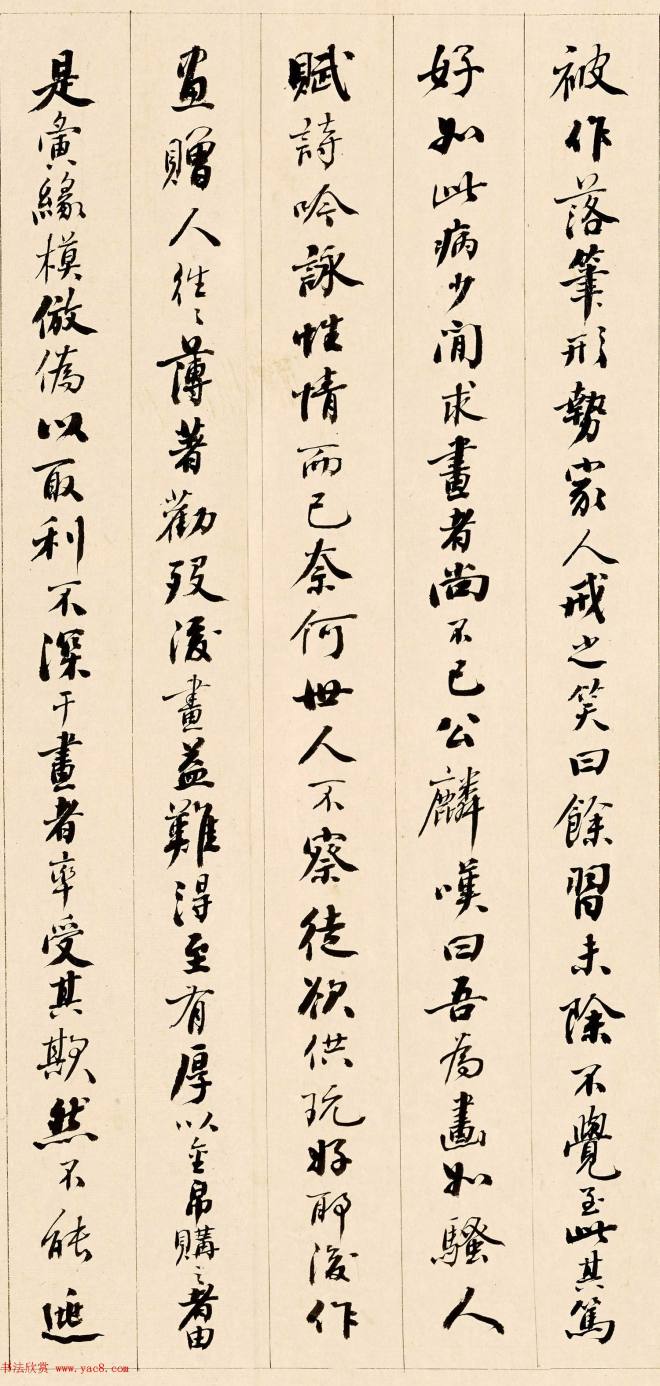 被作落筆形勢家人戒之笑曰餘習未除不覺至此其篤
好如此病少間求畫者尚不已公麟嘆曰吾為畫如騷人
賦詩吟詠性情而已奈何世人不察徒欲供玩好耶後作
畫贈人往往薄著勸戒後畫益難得至有厚以金帛購之者由
是夤緣模倣偽以取利不深于畫者率受其欺然不能逃
书法欣赏 www.yac8.com